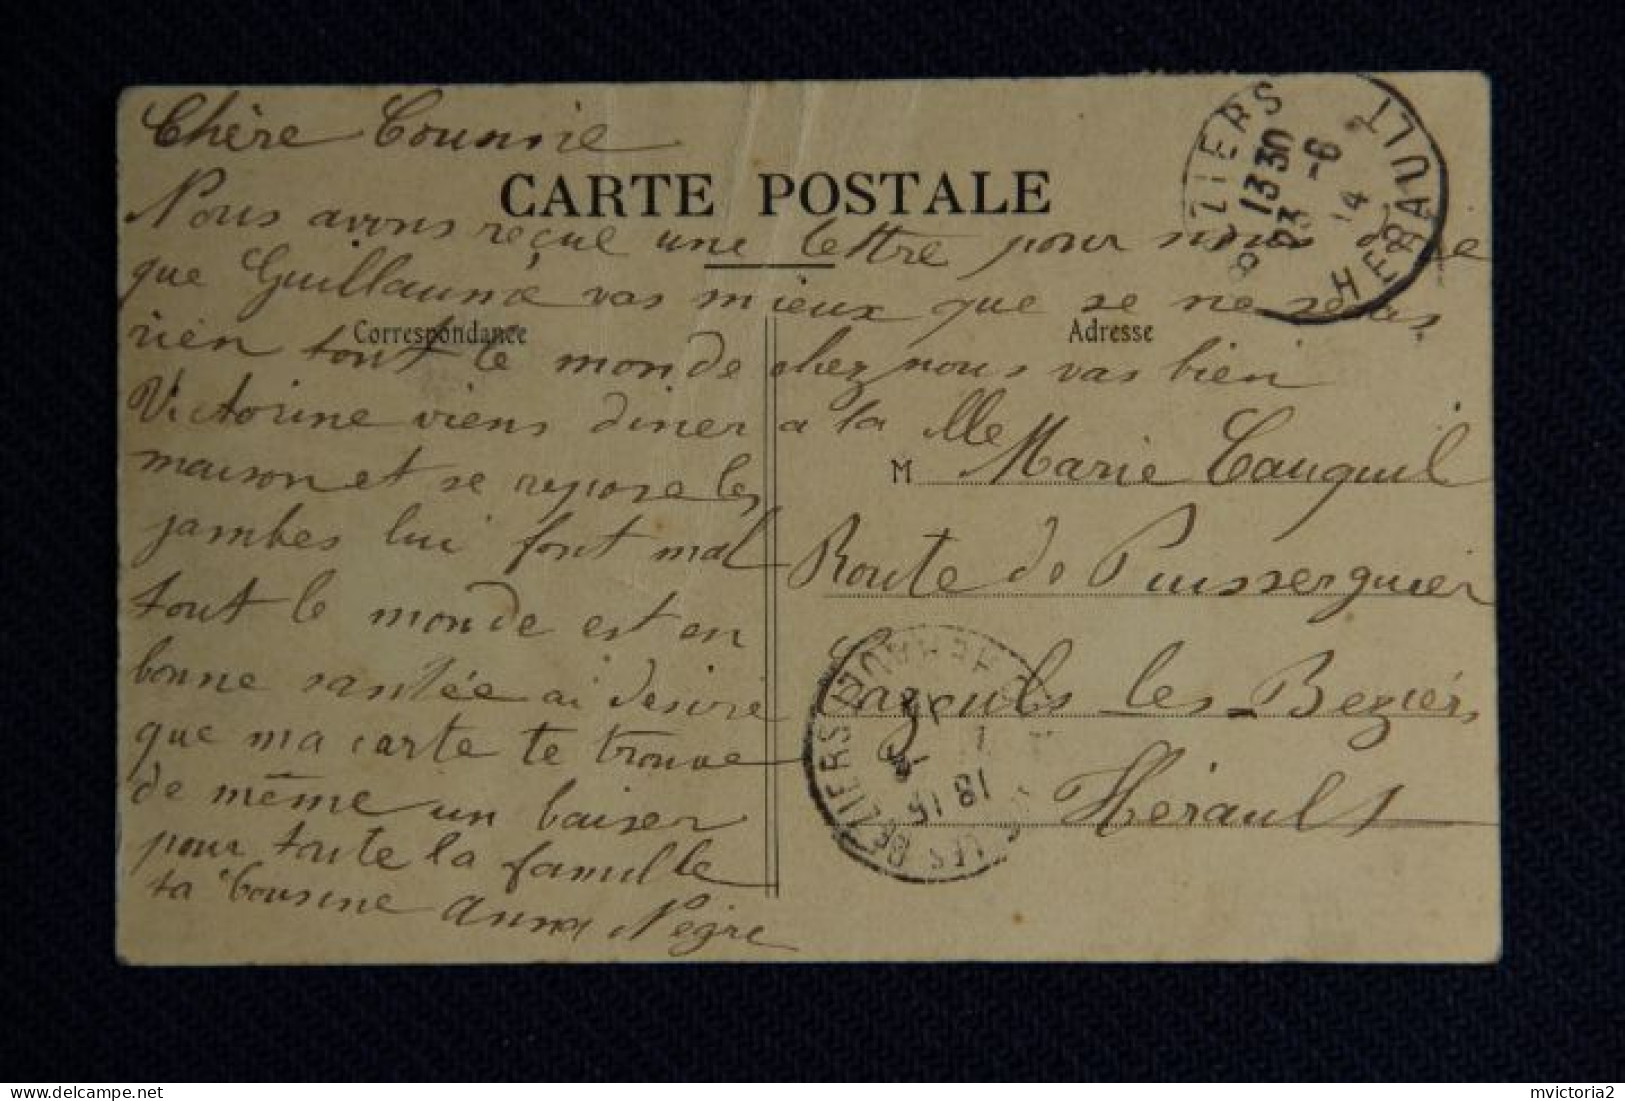 Chère Cousine
CARTE POSTALE
Nous avons reçue une lettre pour nous dire
que Guillaume vas mieux que se ne seras
Correspondance
Adresse
rien tout le monde chez nous vas bien
Victorine viens diner a la
maison et se repose les
jambes lui font mal
tout le monde est en
bonne santée ai desire
que ma carte te trouve
de même un baiser
pour toute la famille
ta cousine Anna Nègre
M Mlle Marie Cauquil
Route de Puisserguier
Cazouls les Beziers
Hérault
BEZIERS
13 30
23 -6
14
HERAULT
LES BEZIERS HERAULT
18 15
mvictoria2